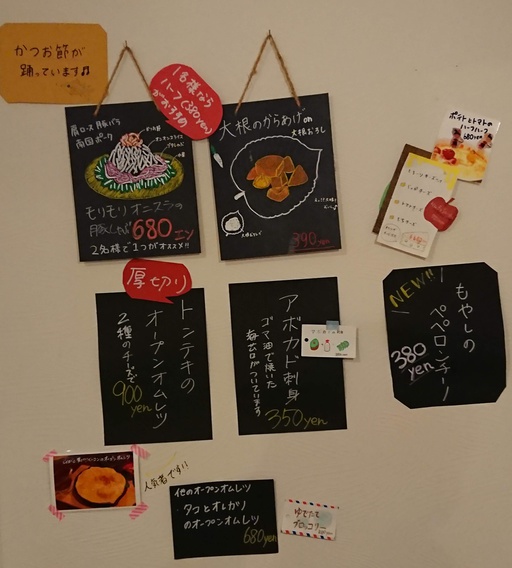 かつお節が
踊っています♫
1名様なら
ハーフ(380yen)
がおすすめ
肩ロース 豚バラ
南国ポーク
モリモリオニスラの
豚しゃぶ 680エン
2名様で1つがオススメ!!
大根のからあげon
大根おろし
390yen
ポテトとトマトの
ハーフハーフ
680yen
厚切り
トンテキの
オープンオムレツ
2種のチーズで
900
yen
アボカド刺身
ゴマ油で焼いた
海苔がついています
350yen
NEW!!
もやしの
ペペロンチーノ
380
yen
人気者です!!
他のオープンオムレツ
・タコとオレガノ
のオープンオムレツ
680yen
ゆでたて
ブロッコリー